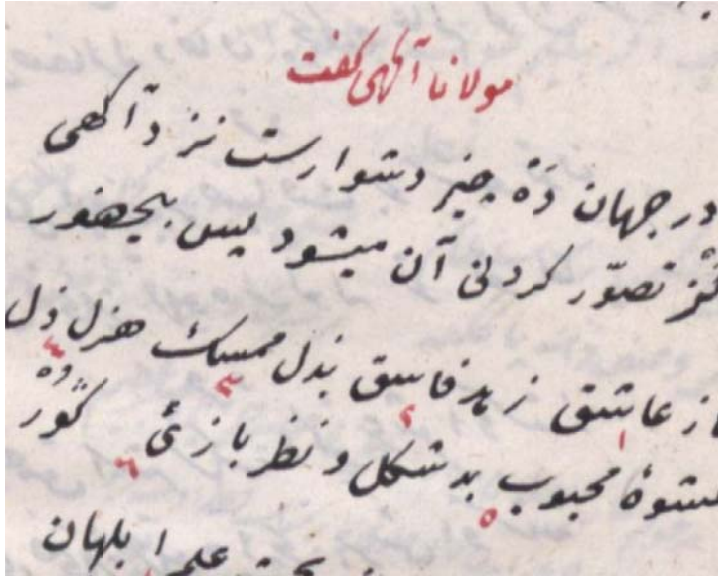 مولانا آگهی گفت
در جهان دَهْ چیز دشوارست نزد آگهی
کز تصوّر کردنی آن میشود پیس بیحضور
ناز عاشق زهد فاسق بذل ممسک هزل رذل
عشوهٔ محبوب بد شکل و نظر بازئ کور
علم ابلهان